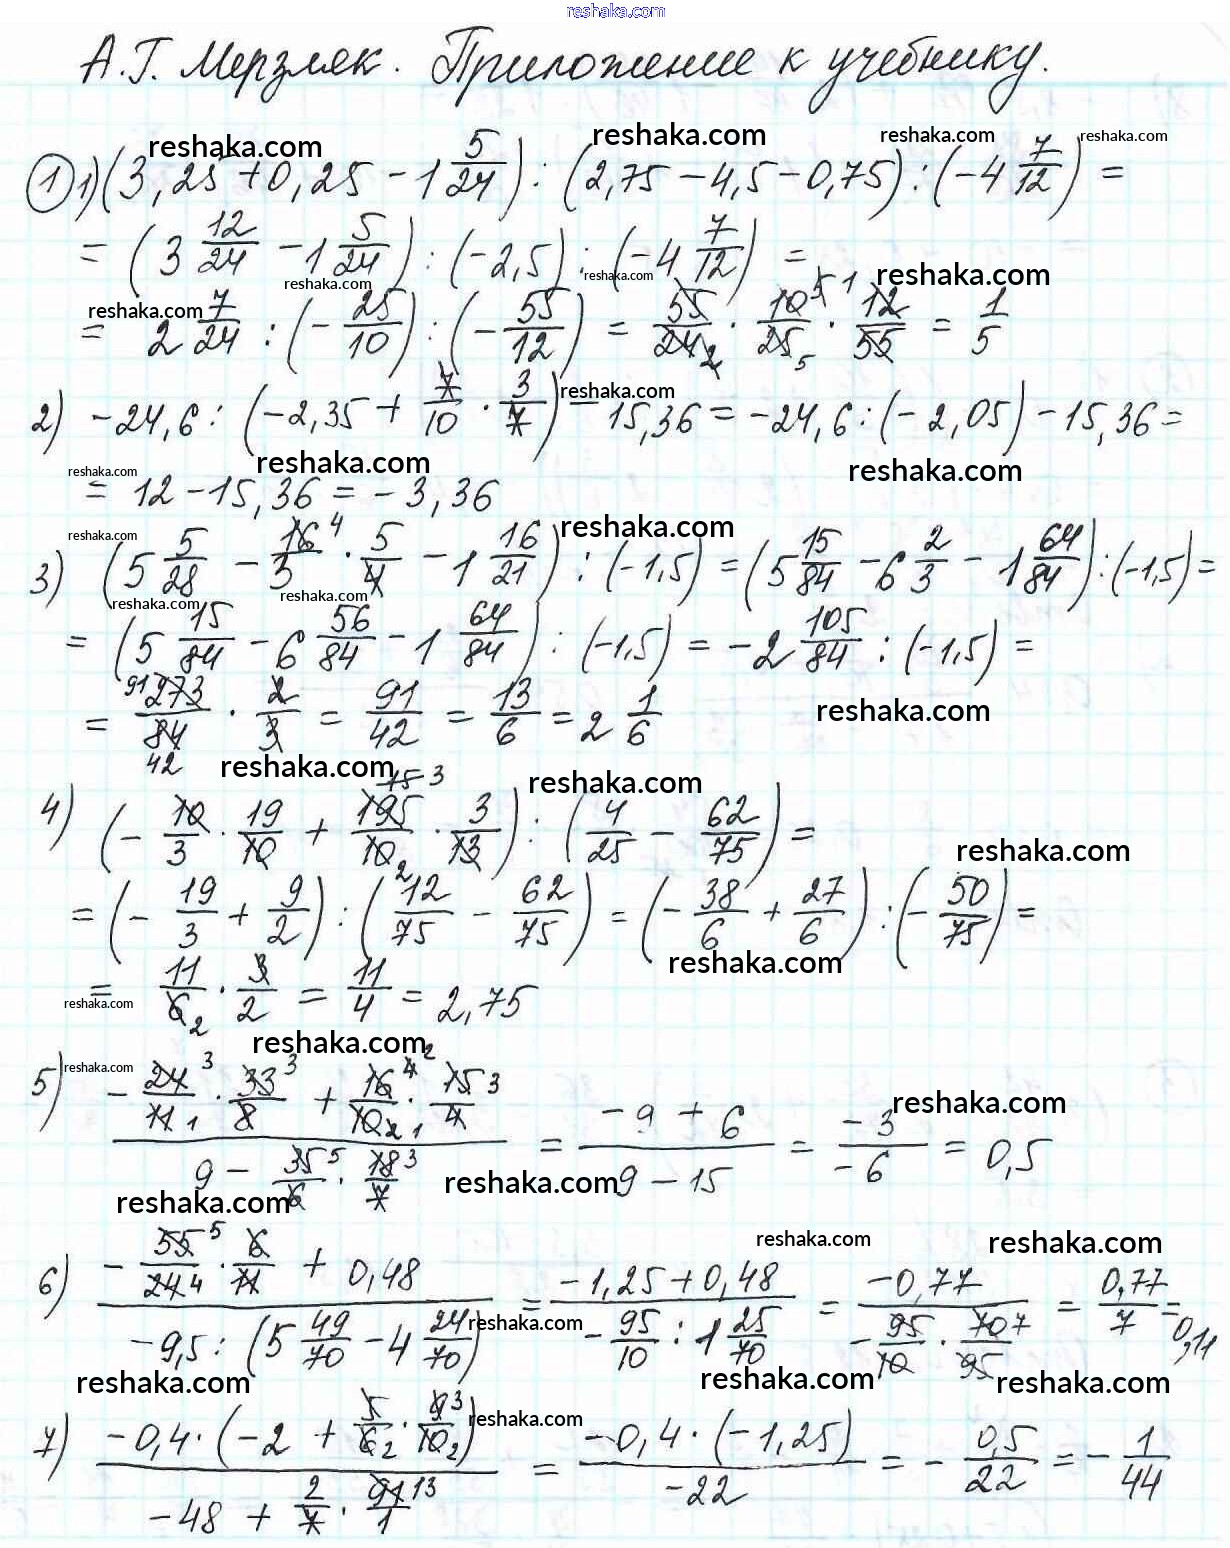 reshaka.com
А.Г. Мерзляк. Приложение к учебнику.
reshaka.com reshaka.com reshaka.com reshaka.com
① 1) (3,25 + 0,25 − 1 5/24) : (2,75 − 4,5 − 0,75) : (−4 7/12) =
= (3 12/24 − 1 5/24) : (−2,5) : (−4 7/12) =
reshaka.com reshaka.com reshaka.com
reshaka.com
= 2 7/24 : (−25/10) : (−55/12) = 55/24 2 · 10/25 5 5 · 1 12/55 = 1/5
2) −24,6 : (−2,35 + 7/10 · 3/7) − 15,36 = −24,6 : (−2,05) − 15,36 =
reshaka.com
reshaka.com reshaka.com reshaka.com
= 12 − 15,36 = −3,36
reshaka.com reshaka.com
3) (5 5/28 − 16/3 4 · 5/4 − 1 16/21) : (−1,5) = (5 15/84 − 6 2/3 − 1 64/84) : (−1,5) =
reshaka.com reshaka.com
= (5 15/84 − 6 56/84 − 1 64/84) : (−1,5) = −2 105/84 : (−1,5) =
= 91 273/84 42 · 2/3 = 91/42 = 13/6 = 2 1/6
reshaka.com
reshaka.com reshaka.com
4) (−10/3 · 19/10 + 15 3 195/10 2 · 3/13) : (4/25 − 62/75) =
reshaka.com
= (−19/3 + 9/2) : (12/75 − 62/75) = (−38/6 + 27/6) : (−50/75) =
reshaka.com
= 11/6 2 · 3/2 = 11/4 = 2,75
reshaka.com
reshaka.com reshaka.com
5) −24/11 3 1 · 33/8 3 + 16/10 4 2 2 · 15/4 3 1 / 9 − 35/6 5 · 18/7 3 = −9 + 6 / 9 − 15 = −3/−6 = 0,5
reshaka.com
reshaka.com reshaka.com
6) −55/24 5 4 · 6/11 + 0,48 / −9,5 : (5 49/70 − 4 24/70) = −1,25 + 0,48 / −95/10 : 1 25/70 = −0,77 / −95/10 · 70/95 7 = 0,77/7 = 0,11
reshaka.com reshaka.com
reshaka.com
reshaka.com reshaka.com reshaka.com
7) −0,4 · (−2 + 5/6 2 · 9/10 3 2) / −48 + 2/7 · 91/1 13 = −0,4 · (−1,25) / −22 = −0,5/22 = −1/44
reshaka.com